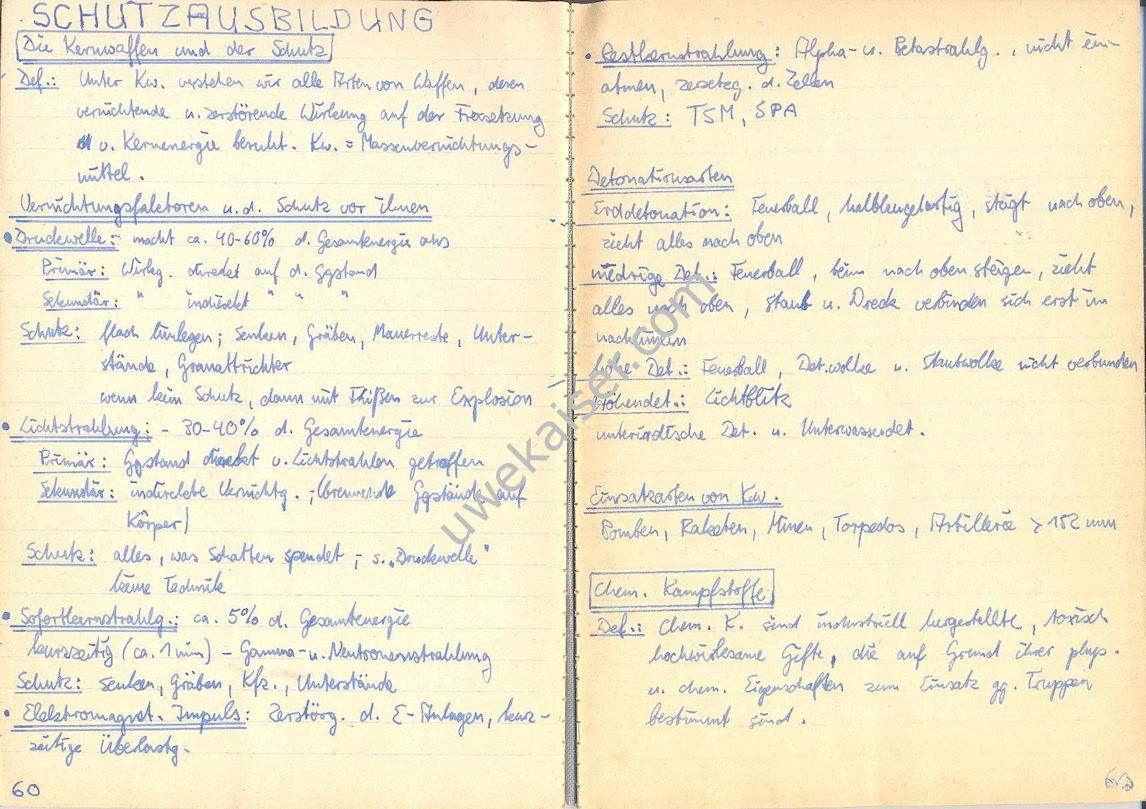 SCHUTZAUSBILDUNG
Die Kernwaffen und der Schutz
Def.: Unter Kw. verstehen wir alle Arten von Waffen, deren
vernichtende u. zerstörende Wirkung auf der Freisetzung
v. Kernenergie beruht. Kw. = Massenvernichtungs-
mittel.
Vernichtungsfaktoren u. d. Schutz vor ihnen
• Druckwelle: - macht ca. 40-60% d. Gesamtenergie aus
Primär: Wirkg. direkt auf d. Ggstand
Sekundär: " indirekt " " "
Schutz: flach hinlegen; Senken, Gräben, Mauerreste, Unter-
stände, Granattrichter
wenn kein Schutz, dann mit Füßen zur Explosion
• Lichtstrahlung: - 30-40% d. Gesamtenergie
Primär: Ggstand direkt v. Lichtstrahlen getroffen
Sekundär: indirekte Vernichtg. (brennende Ggstände auf
Körper)
Schutz: alles, was Schatten spendet, s. "Druckwelle"
keine Technik
• Sofortkernstrahlg.: ca. 5% d. Gesamtenergie
kurzzeitig (ca. 1 min) - Gamma- u. Neutronenstrahlung
Schutz: Senken, Gräben, Kfz., Unterstände
• Elektromagnet. Impuls: Zerstörg. d. E-Anlagen, kurz-
zeitige Überlastg.
60
• Restkernstrahlung: Alpha- u. Betastrahlg., nicht ein-
atmen, zersetzg. d. Zellen
Schutz: TSM, SPA
Detonationsarten
Erddetonation: Feuerball, halbkugelartig, steigt nach oben,
zieht alles nach oben
niedrige Det.: Feuerball, beim nach oben steigen, zieht
alles nach oben, Staub u. Dreck verbinden sich erst im
nachhinein
hohe Det.: Feuerball, Det.wolke u. Staubwolke nicht verbunden
Höhendet.: Lichtblitz
unterirdische Det. u. Unterwasserdet.
Einsatzarten von Kw.
Bomben, Raketen, Minen, Torpedos, Artillerie > 152 mm
Chem. Kampfstoffe
Def.: Chem. K. sind industriell hergestellte, toxisch
hochwirksame Gifte, die auf Grund ihrer phys.
u. chem. Eigenschaften zum Einsatz gg. Truppen
bestimmt sind.
uwekaiser.com